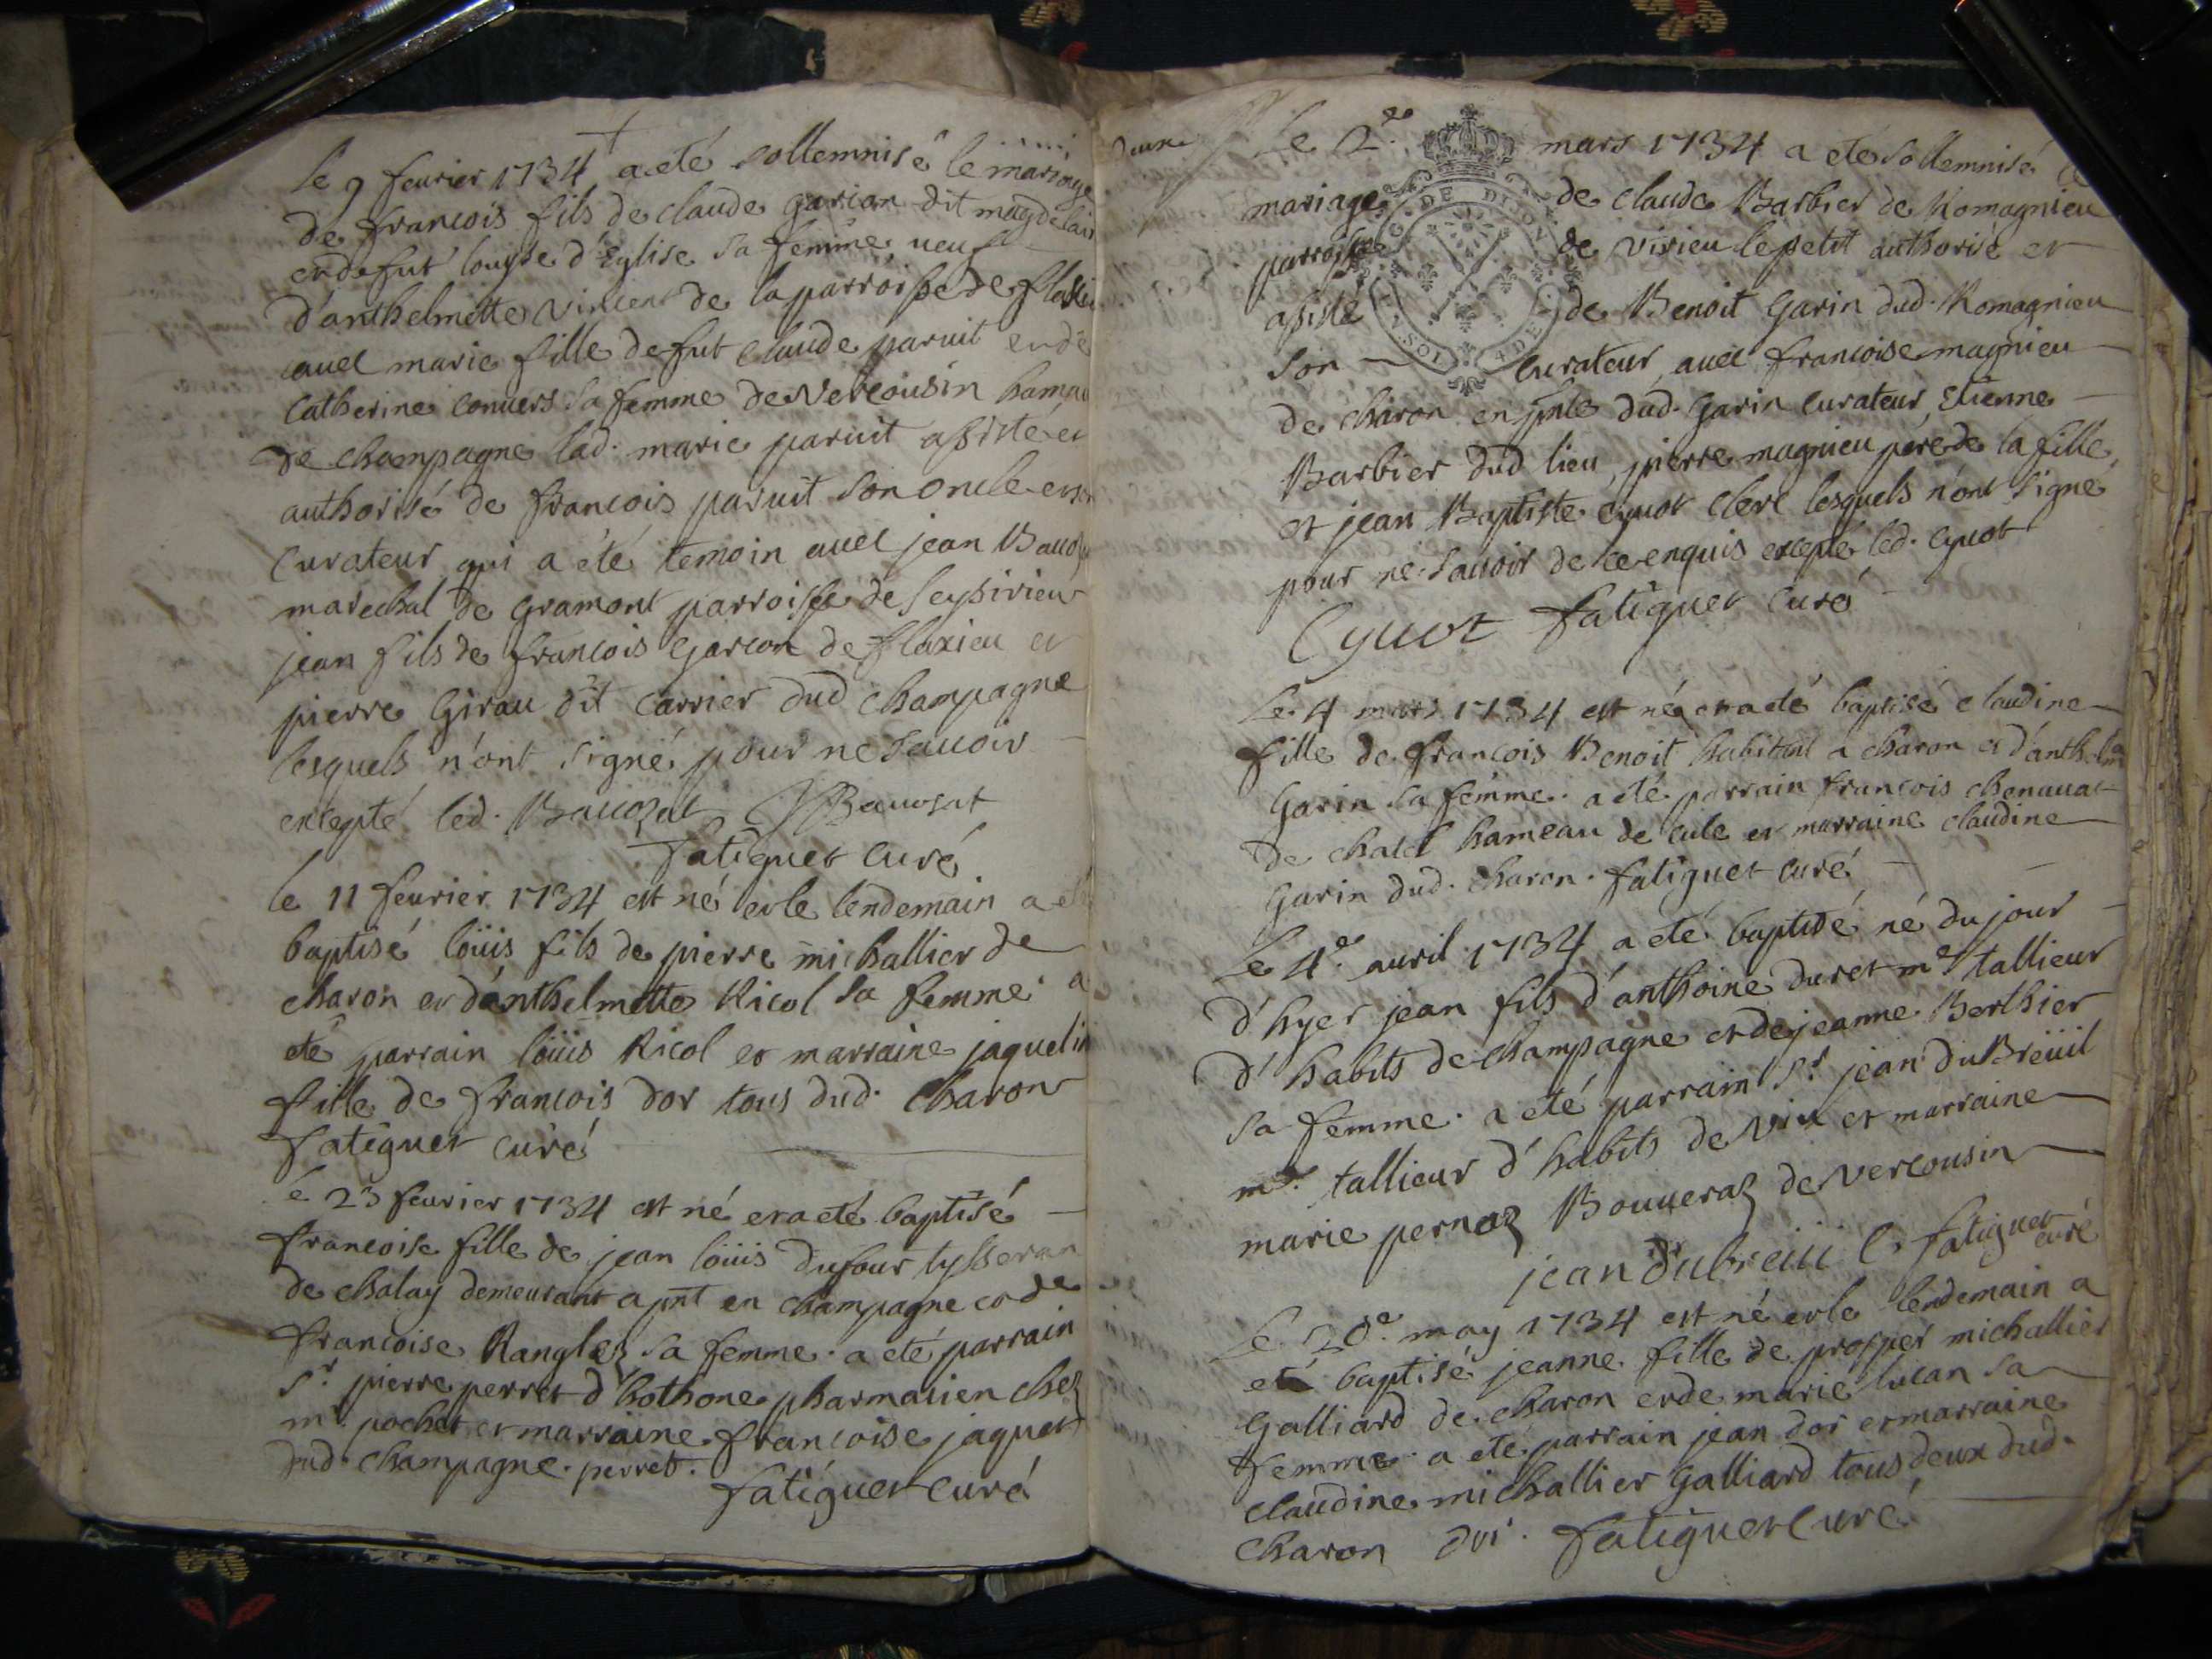 Le 9 feurier 1734 a eté sollemnisé le mariage
de francois fils de claude garçon dit magdelain
et de fut louyse d'Eglise sa femme ueuf
d'anthelmette Vincent de la parroisse de flaxieu
auec marie fille de fut claude paruit et de
Catherine conuers sa femme de Vercousin hameau
de champagne lad. marie paruit assisté et
authorisé de francois paruit son oncle et son
Curateur qui a été temoin auec jean Bauozat
marechal de Gramont parroisse de Seyssirieu
jean fils de francois Garcon de flaxieu et
pierre Girau dit Carrier dud champagne
lesquels n'ont signé pour ne sauoir
excepté led. Bauozat JBauosat
fatiguet curé
le 11 feurier 1734 est né et le lendemain a eté
baptisé loüis fils de pierre michallier de
charon et d'anthelmette Ricol sa femme a
eté parrain loüis Ricol et marraine jaqueline
fille de francois dor tous dud. Charon
fatiguet curé
le 23 feurier 1734 est né et a eté baptisé
francoise fille de jean loüis dufour tysseran
de chalay demeurant a pnt en champagne et de
francoise Ranglez sa femme. a eté parrain
Sr. pierre perret d'hothone pharmasien chez
mr. pochet et marraine francoise jaquet
dud. champagne. perret.
fatiguet curé
Le 2e. mars 1734 a eté sollemnisé le
mariage de claude Barbier de Romagnieu
parroisse de Virieu le petit authorisé et
assisté de Benoit Garin dud. Romagnieu
GE. DE DIJON
4 DE
SOL
son Curateur, auec francoise magnieu
de charon en pnce dud. Garin Curateur, Etienne
Barbier dud lieu, pierre magnieu pere de la fille,
et jean Baptiste Cyuot clerc lesquels n'ont signé
pour ne sauoir de ce enquis excepté led. Cyuot
Cyuot fatiguet curé
Le 4 mars 1734 est né et a eté baptisé claudine
fille de francois Benoit habitant a charon et d'anthelme
Garin sa femme. a eté parrain francois chenauat
de chatel hameau de cule et marraine claudine
Garin dud. charon. fatiguet curé
Le 4e. auril 1734 a eté baptisé né du jour
d'hyer jean fils d'anthoine duret me tallieur
d'habits de champagne et de jeanne Berthier
sa femme. a eté parrain Sr. jean duBreüil
me. tallieur d'habits de Vix et marraine
marie pernaz Bouueraz de Vercousin
jean dubreiiil. fatiguet
curé
Le 20e. may 1734 est né et le lendemain a
eté baptisé jeanne fille de prosper michallier
Galliard de charon et de marie lucan sa
femme. a eté parrain jean dor et marraine
claudine michallier Galliard tous deux dud.
Charon fatiguet curé